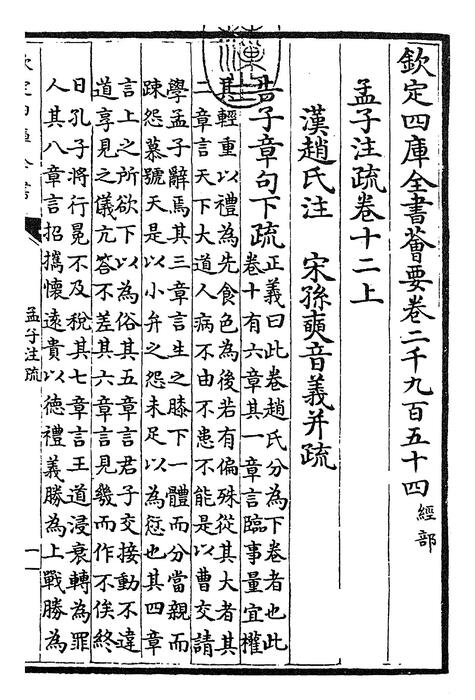 欽定四庫全書薈要卷二千九百五十四 經部
孟子注疏卷十二上
漢趙氏注 宋孫奭音義并疏
告子章句下疏
正義曰此卷趙氏分為下卷者也此
卷十有六章其一章言臨事量宜權
其輕重以禮為先食色為後若有偏殊從其大者其
二章言天下大道人病不由不患不能是以曹交請
學孟子辭焉其三章言生之膝下一體而分當親而
疎怨慕號天是以小弁之怨未足以為愆也其四章
言上之所欲下以為俗其五章言君子交接動不違
道享見之儀亢答不差其六章言見幾而作不俟終
日孔子將行冕不及稅其七章言王道浸衰轉為罪
人其八章言招攜懷遠貴以德禮義勝為上戰勝為
欽定四庫全書
孟子注疏
一